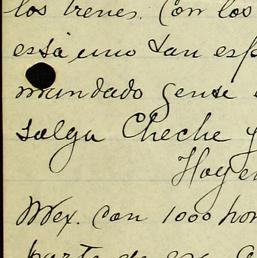 los trenes. Con los
está uno tan esp
mandado gente
salga Cheche y
Hoy e
Mex. con 1000 hom
parte de esa